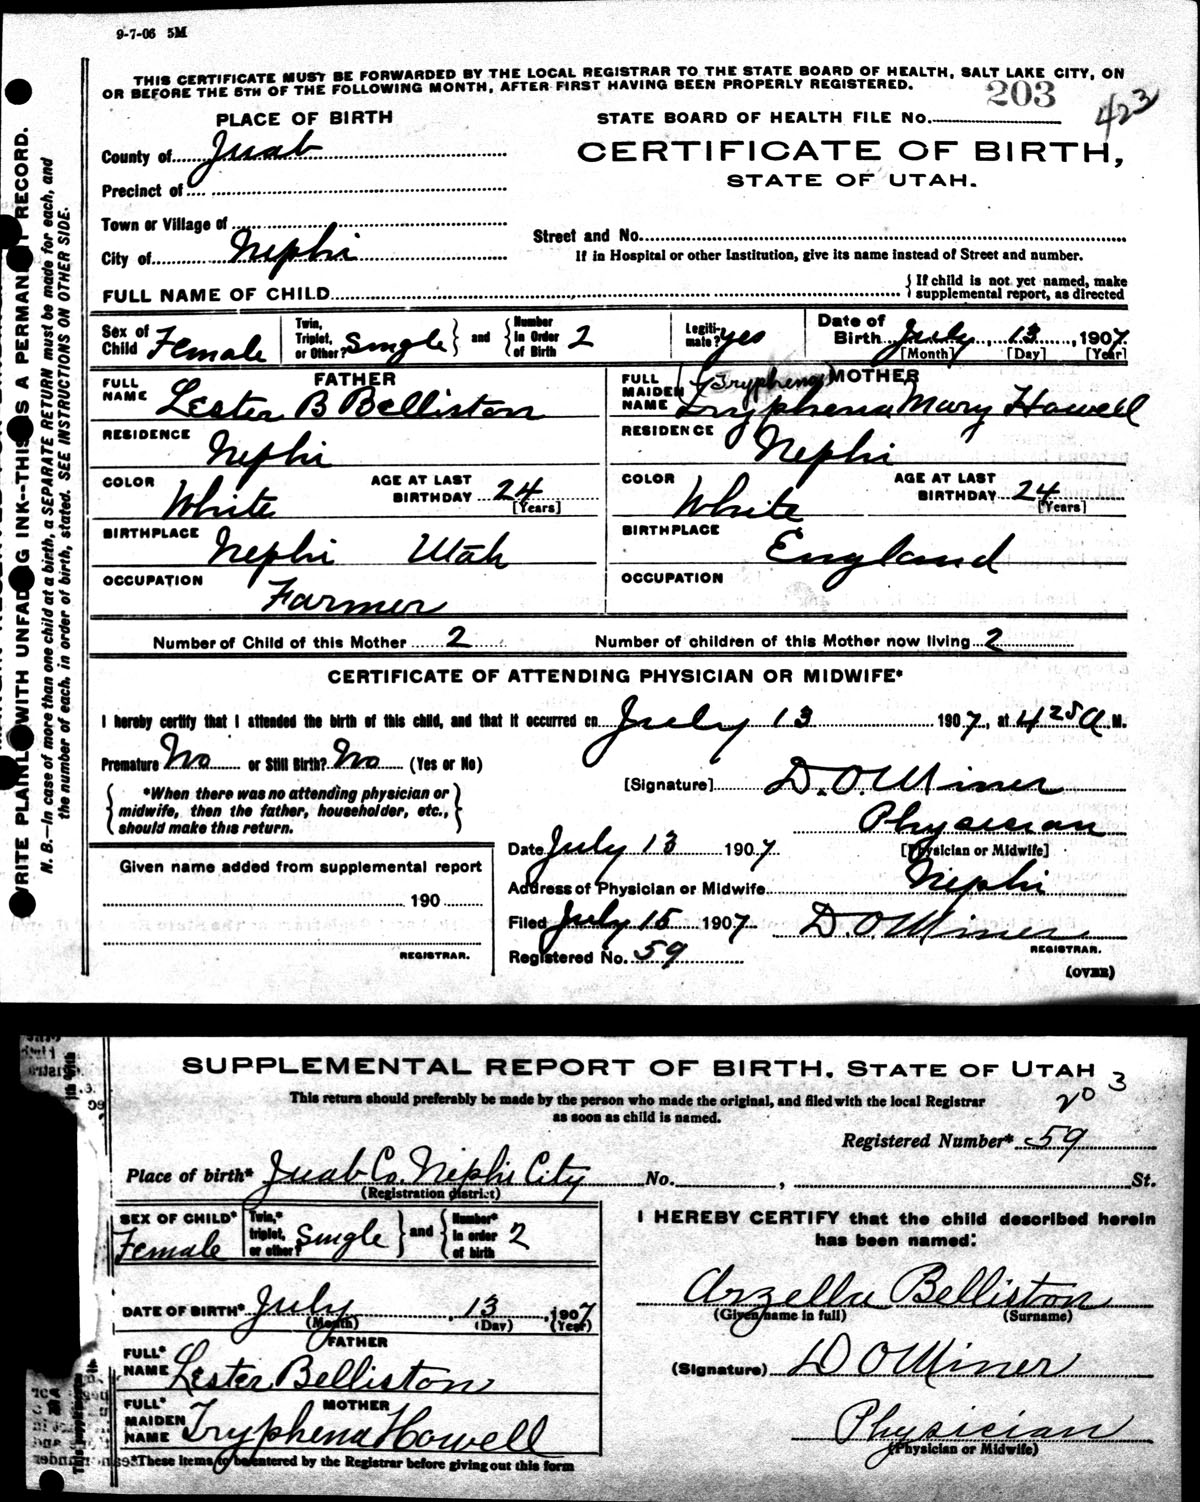 9-7-06 5M
THIS CERTIFICATE MUST BE FORWARDED BY THE LOCAL REGISTRAR TO THE STATE BOARD OF HEALTH, SALT LAKE CITY, ON
OR BEFORE THE 5TH OF THE FOLLOWING MONTH, AFTER FIRST HAVING BEEN PROPERLY REGISTERED.
203
423
PLACE OF BIRTH
STATE BOARD OF HEALTH FILE No.
County of Juab
CERTIFICATE OF BIRTH,
STATE OF UTAH.
Precinct of
Town or Village of
Street and No.
City of Nephi
If in Hospital or other Institution, give its name instead of Street and number.
FULL NAME OF CHILD
{ If child is not yet named, make supplemental report, as directed
Sex of Child Female
Twin, Triplet, or Other? Single } and { Number in Order of Birth 2
Legitimate? yes
Date of Birth July 13, 1907
[Month] [Day] [Year]
FATHER
FULL NAME Lester B Belliston
RESIDENCE Nephi
COLOR White
AGE AT LAST BIRTHDAY 24 [Years]
BIRTHPLACE Nephi Utah
OCCUPATION Farmer
MOTHER
(Tryphena)
FULL MAIDEN NAME Tryphena Mary Howell
RESIDENCE Nephi
COLOR White
AGE AT LAST BIRTHDAY 24 [Years]
BIRTHPLACE England
OCCUPATION
Number of Child of this Mother 2
Number of children of this Mother now living 2
CERTIFICATE OF ATTENDING PHYSICIAN OR MIDWIFE*
I hereby certify that I attended the birth of this child, and that it occurred on July 13 1907, at 4 25 A. M.
Premature No or Still Birth? No (Yes or No)
*When there was no attending physician or
midwife, then the father, householder, etc.,
should make this return.
[Signature] D. O. Miner
Physician
[Physician or Midwife]
Date July 13 1907
Address of Physician or Midwife Nephi
Filed July 15 1907 D. O. Miner
REGISTRAR.
Registered No. 59
(OVER)
Given name added from supplemental report
190
REGISTRAR.
WRITE PLAINLY WITH UNFADING INK--THIS IS A PERMANENT RECORD.
N. B.—In case of more than one child at a birth, a SEPARATE RETURN must be made for each, and
the number of each, in order of birth, stated. SEE INSTRUCTIONS ON OTHER SIDE.
SUPPLEMENTAL REPORT OF BIRTH, STATE OF UTAH
203
This return should preferably be made by the person who made the original, and filed with the local Registrar
as soon as child is named.
Registered Number* 59
Place of birth* Juab Co. Nephi City No. , St.
(Registration district)
SEX OF CHILD* Female
Twin,* triplet, or other? Single } and { Number* in order of birth 2
DATE OF BIRTH* July 13, 1907
(Month) (Day) (Year)
FATHER
FULL* NAME Lester Belliston
MOTHER
FULL* MAIDEN NAME Tryphena Howell
*These items to be entered by the Registrar before giving out this form
I HEREBY CERTIFY that the child described herein
has been named:
Arzella Belliston
(Given name in full) (Surname)
(Signature) D O Miner
Physician
(Physician or Midwife)